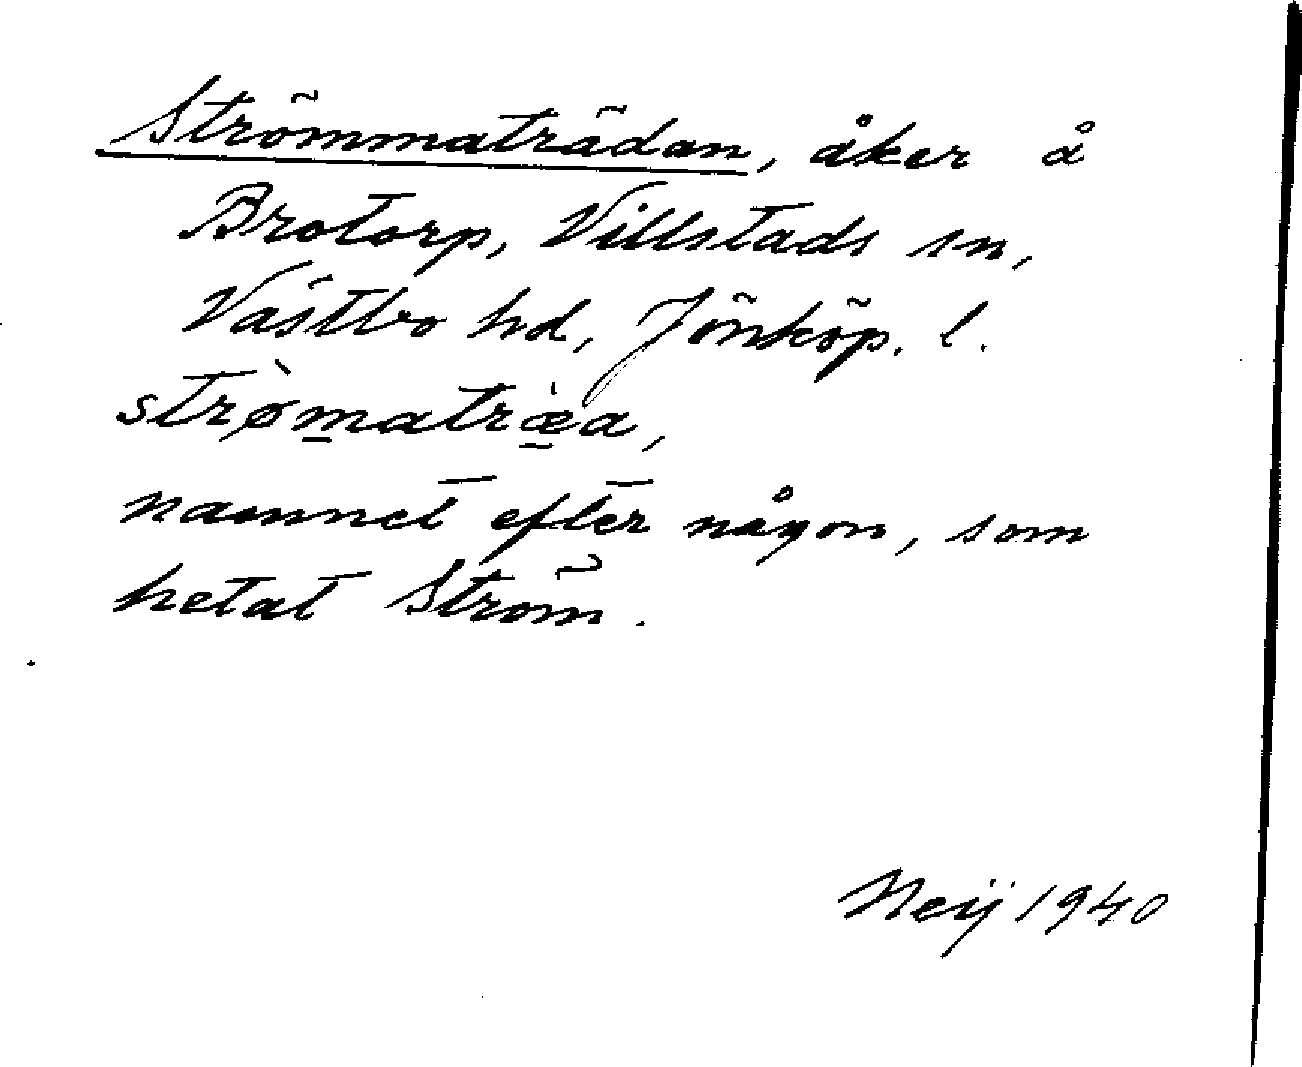 Strömmaträdan, åker å
Brotorp, Villstads sn,
Västbo hd, Jönköp. l.
strø̀m̲atræ̲̀a,
namnet efter någon, som
hetat Ström.
Neij 1940